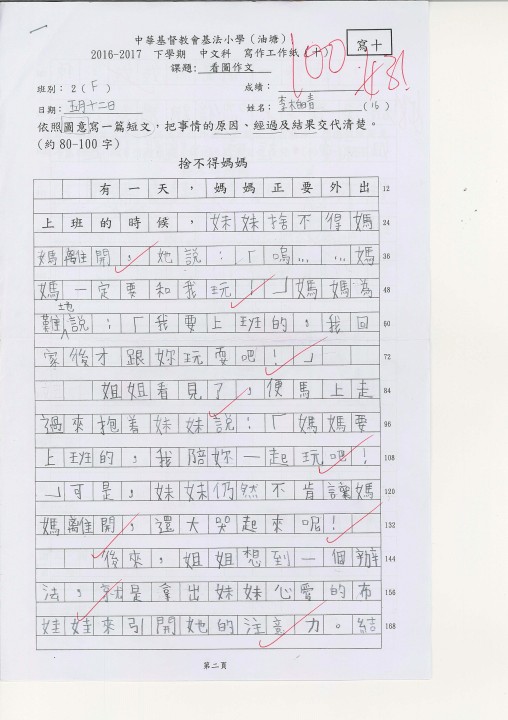 中華基督教會基法小學（油塘）
2016-2017 下學期 中文科 寫作工作紙（十）
寫十
課題：看圖作文
100
班別：2（F）
成績：
日期：五月十二日
姓名：（16）
依照圖意寫一篇短文，把事情的原因、經過及結果交代清楚。
（約80-100字）
捨不得媽媽
有一天，媽媽正要外出 12
上班的時候，妹妹捨不得媽 24
媽離開，她說：「嗚……媽 36
媽一定要和我玩！」媽媽為 48
難地說：「我要上班的，我回 60
家後才跟妳玩耍吧！」 72
姐姐看見了，便馬上走 84
過來抱着妹妹說：「媽媽要 96
上班的，我陪妳一起玩吧！ 108
」可是，妹妹仍然不肯讓媽 120
媽離開，還大哭起來呢！ 132
後來，姐姐想到一個辦 144
法，就是拿出妹妹心愛的布 156
娃娃來引開她的注意力。結 168
第二頁